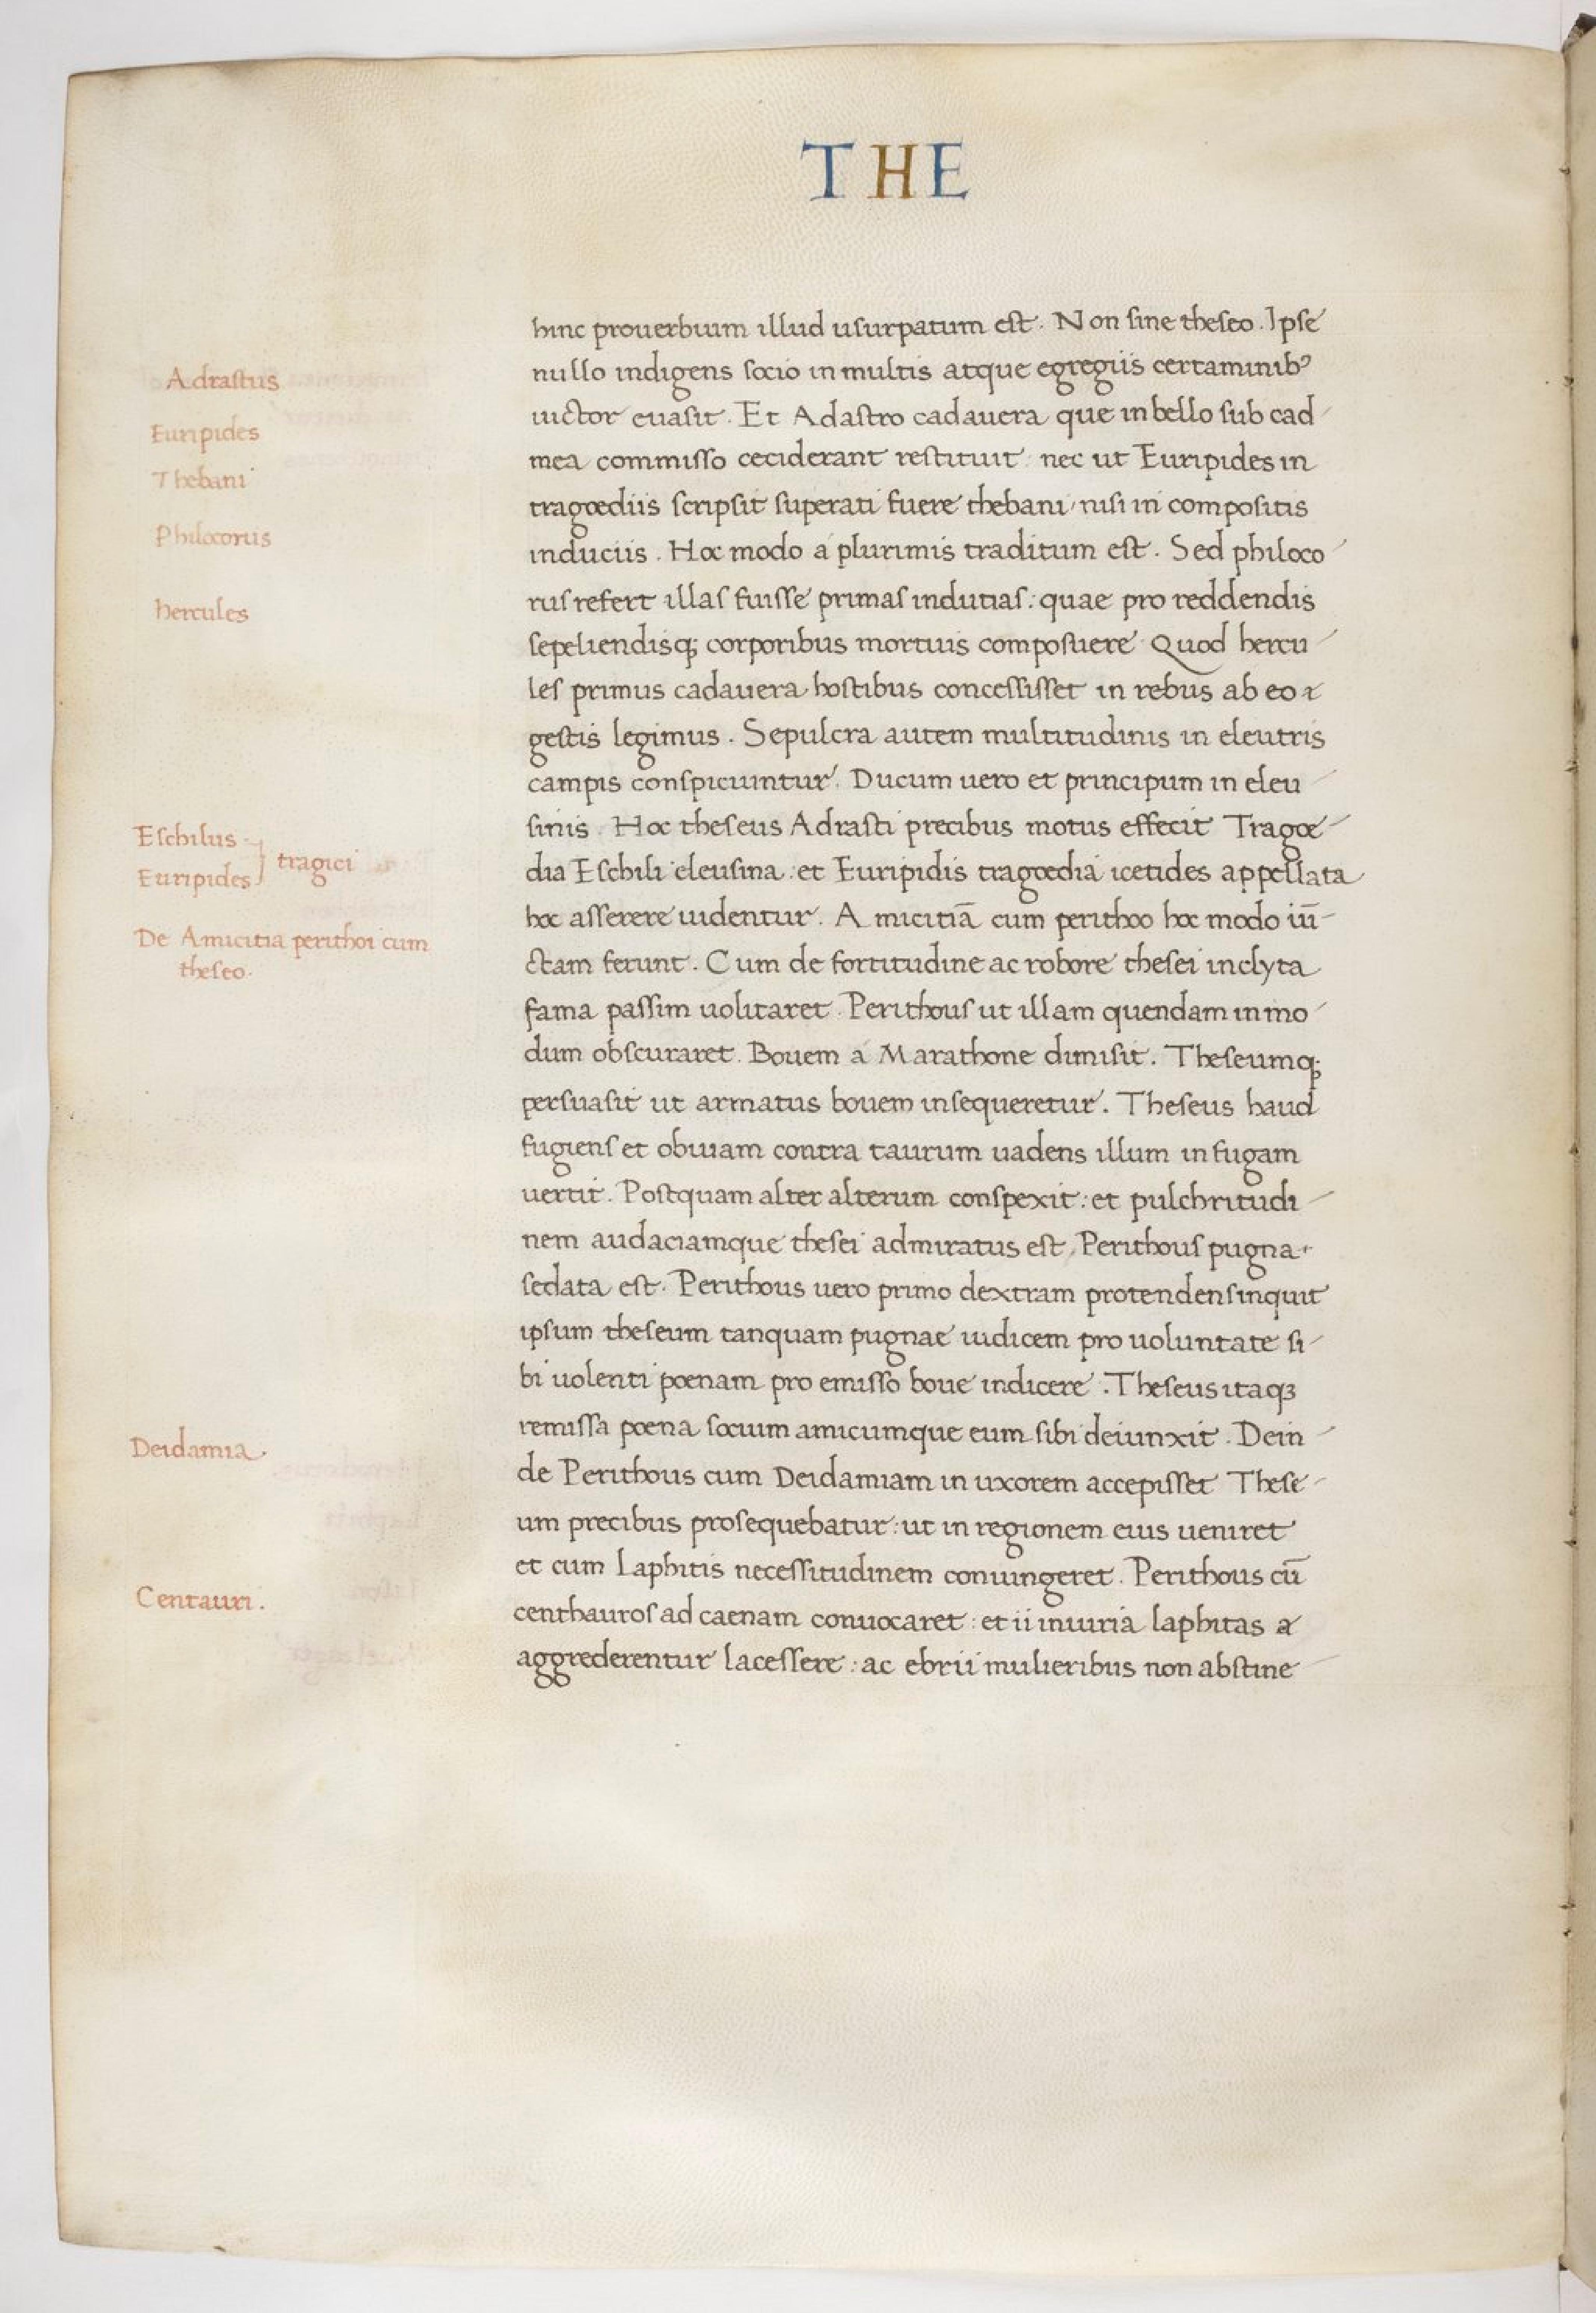 THE
hinc prouerbium illud usurpatum est. Non sine theseo. Ipse
nullo indigens socio in multis atque egregiis certaminibꝰ
uictor euasit. Et Adastro cadauera que in bello sub cad
mea commisso ceciderant restituit: nec ut Euripides in
tragoediis scripsit superati fuere thebani, nisi in compositis
induciis. Hoc modo a plurimis traditum est. Sed philoco
rus refert illas fuisse primas indutias: quae pro reddendis
sepeliendisq; corporibus mortuis composuere. Quod hercu
les primus cadauera hostibus concessisset in rebus ab eo
gestis legimus. Sepulcra autem multitudinis in eleutris
campis conspiciuntur. Ducum uero et principum in eleu
sinis. Hoc theseus Adrasti precibus motus effecit Tragoe
dia Eschili eleusina: et Euripidis tragoedia icetides appellata
hoc asserere uidentur. Amicitiā cum perithoo hoc modo iū
ctam ferunt. Cum de fortitudine ac robore thesei inclyta
fama passim uolitaret. Perithous ut illam quendam in mo
dum obscuraret. Bouem a Marathone dimisit. Theseumq;
persuasit ut armatus bouem insequeretur. Theseus haud
fugiens et obuiam contra taurum uadens illum in fugam
uertit. Postquam alter alterum conspexit: et pulchritudi
nem audaciamque thesei admiratus est, Perithous pugna
sedata est. Perithous uero primo dextram protendens inquit
ipsum theseum tanquam pugnae iudicem pro uoluntate si
bi uolenti poenam pro emisso boue indicere. Theseus itaqꝫ
remissa poena socium amicumque eum sibi deiunxit. Dein
de Perithous cum Deidamiam in uxorem accepisset These
um precibus prosequebatur: ut in regionem eius ueniret
et cum Laphitis necessitudinem coniungeret. Perithous cū
centhauros ad caenam conuocaret: et ii iniuria laphitas a
aggrederentur lacessere: ac ebrii mulieribus non abstine
Adrastus
Euripides
Thebani
Philocorus
hercules
Eschilus
Euripides
tragici
De Amicitia perithoi cum
theseo.
Deidamia.
Centauri.